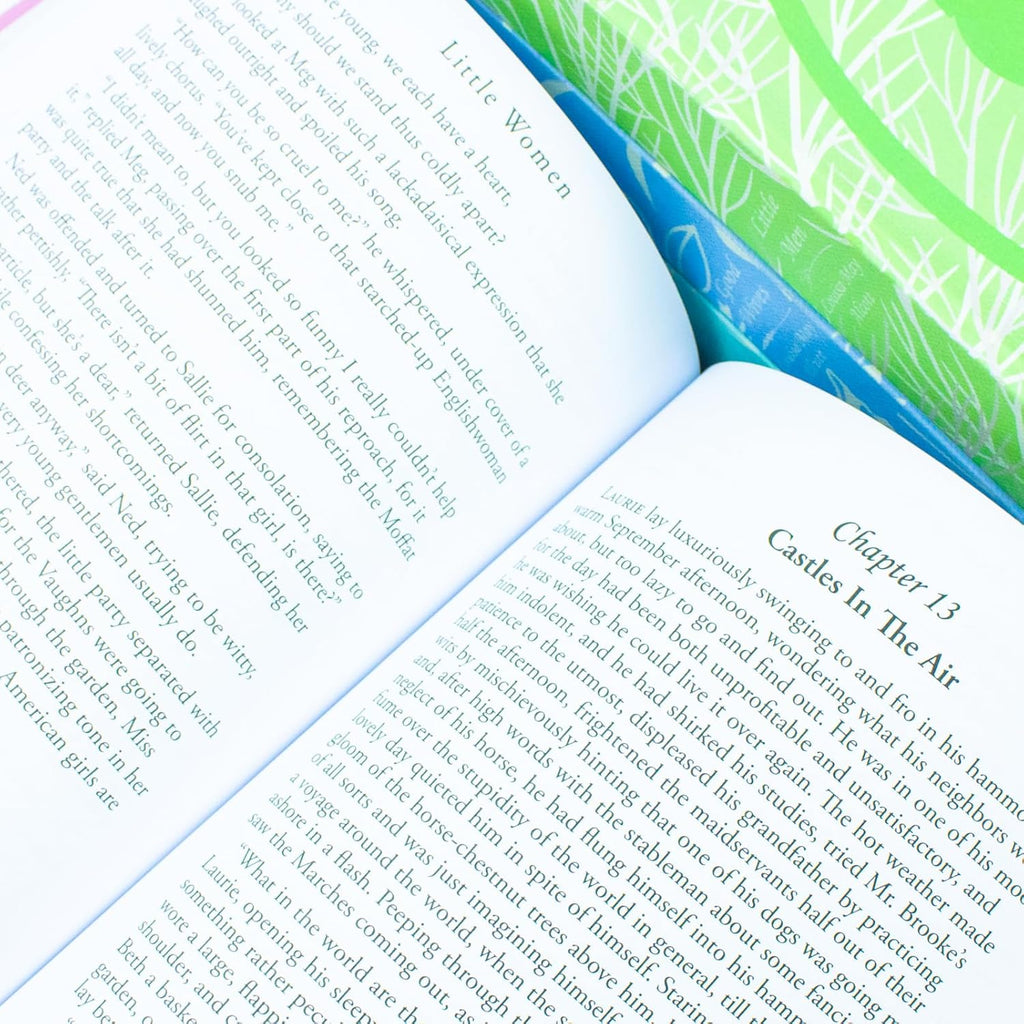 Little Women
young, we each have a heart,
should we stand thus coldly apart?
looked at Meg with such a lackadaisical expression that she
laughed outright and spoiled his song.
"How can you be so cruel to me?" he whispered, under cover of a
lively chorus. "You've kept close to that starched-up Englishwoman
all day, and now you snub me."
"I didn't mean to, but you looked so funny I really couldn't help
it," replied Meg, passing over the first part of his reproach, for it
was quite true that she had shunned him, remembering the Moffat
party and the talk after it.
Ned was offended and turned to Sallie for consolation, saying to
pettishly, "There isn't a bit of flirt in that girl, is there?"
particle, but she's a dear," returned Sallie, defending her
confessing her shortcomings.
deer anyway," said Ned, trying to be witty,
very young gentlemen usually do,
the little party separated with
for the Vaughns were going to
through the garden, Miss
patronizing tone in her
American girls are
Chapter 13
Castles In The Air
Laurie lay luxuriously swinging to and fro in his
warm September afternoon, wondering what his neighbors
about, but too lazy to go and find out. He was in one of his
for the day had been both unprofitable and unsatisfactory, and
he was wishing he could live it over again. The hot weather made
him indolent, and he had shirked his studies, tried Mr. Brooke's
patience to the utmost, displeased his grandfather by practicing
half the afternoon, frightened the maidservants half out of their
wits by mischievously hinting that one of his dogs was going
and after high words with the stableman about some
neglect of his horse, he had flung himself into his
fume over the stupidity of the world in general, till
lovely day quieted him in spite of himself.
gloom of the horse-chestnut trees above him,
of all sorts and was just imagining himself
a voyage around the world, when the
ashore in a flash. Peeping through
saw the Marches coming out, as
"What in the world are
Laurie, opening his
something rather
wore a large,
shoulder, and
Beth a
garden,
lay
Little
Men
Louisa May
Alcott
Good
Wives